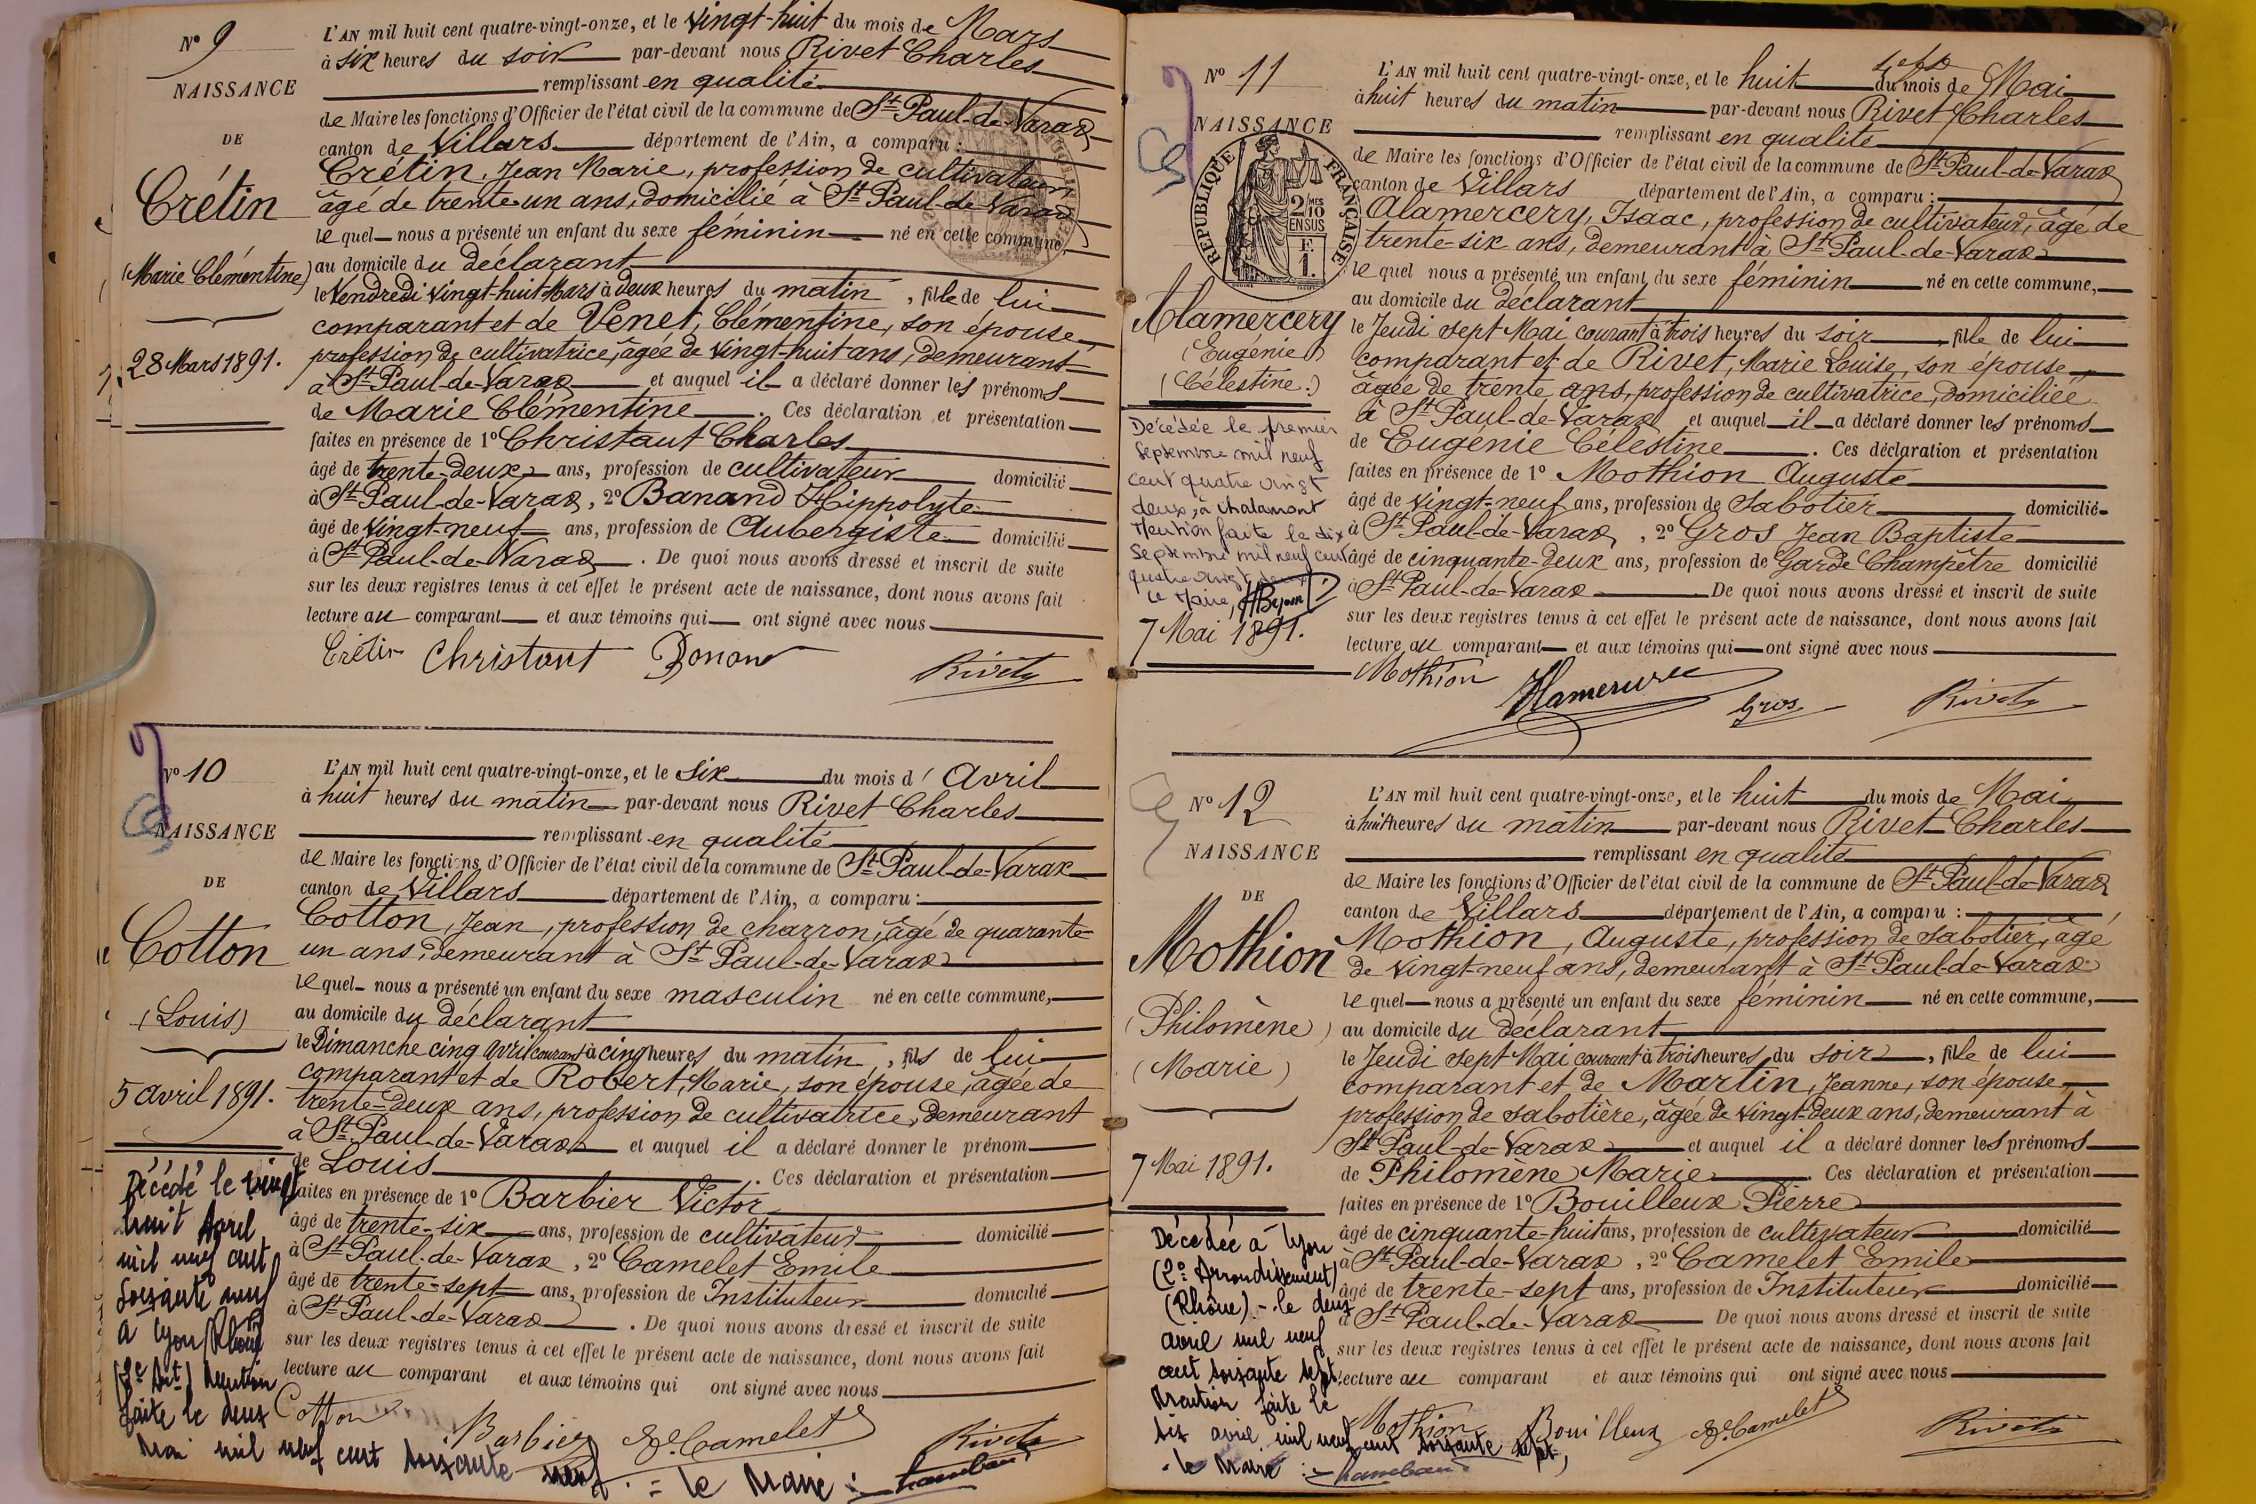 N° 9
NAISSANCE
DE
Crétin
(Marie Clémentine)
28 Mars 1891.
L'AN mil huit cent quatre-vingt-onze, et le vingt-huit du mois de Mars
à six heures du soir par-devant nous Rivet Charles
remplissant en qualité
de Maire les fonctions d'Officier de l'état civil de la commune de St Paul-de-Varax
canton de Villars département de l'Ain, a comparu :
Crétin, Jean Marie, profession de cultivateur,
âgé de trente-un ans, domicilié à St Paul-de-Varax
lequel nous a présenté un enfant du sexe féminin né en cette commune,
au domicile du déclarant
le Vendredi vingt-huit Mars à deux heures du matin, fille de lui
comparant et de Venet, Clémentine, son épouse,
profession de cultivatrice, âgée de vingt-huit ans, demeurant
à St Paul-de-Varax et auquel il a déclaré donner les prénoms
de Marie Clémentine. Ces déclaration et présentation
faites en présence de 1° Christaut Charles
âgé de trente-deux ans, profession de cultivateur domicilié
à St Paul-de-Varax, 2° Banand Hippolyte
âgé de vingt-neuf ans, profession de Aubergiste domicilié
à St Paul-de-Varax. De quoi nous avons dressé et inscrit de suite
sur les deux registres tenus à cet effet le présent acte de naissance, dont nous avons fait
lecture au comparant et aux témoins qui ont signé avec nous
Crétin Christaut Banand Rivet
N° 10
NAISSANCE
DE
Cotton
(Louis)
5 avril 1891.
Décédé le vingt
huit Avril
mil neuf cent
soixante neuf
à Lyon (Rhône)
mention
faite le deux
Mai mil neuf cent soixante neuf. = le Maire :
L'AN mil huit cent quatre-vingt-onze, et le six du mois d'Avril
à huit heures du matin par-devant nous Rivet Charles
remplissant en qualité
de Maire les fonctions d'Officier de l'état civil de la commune de St Paul-de-Varax
canton de Villars département de l'Ain, a comparu :
Cotton, Jean, profession de charron, âgé de quarante-
un ans, demeurant à St Paul-de-Varax
lequel nous a présenté un enfant du sexe masculin né en cette commune,
au domicile du déclarant
le Dimanche cinq Avril courant à cinq heures du matin, fils de lui
comparant et de Robert, Marie, son épouse, âgée de
trente-deux ans, profession de cultivatrice, demeurant
à St Paul-de-Varax et auquel il a déclaré donner le prénom
de Louis. Ces déclaration et présentation
faites en présence de 1° Barbier Victor
âgé de trente-six ans, profession de cultivateur domicilié
à St Paul-de-Varax, 2° Camelet Emile
âgé de trente-sept ans, profession de Instituteur domicilié
à St Paul-de-Varax. De quoi nous avons dressé et inscrit de suite
sur les deux registres tenus à cet effet le présent acte de naissance, dont nous avons fait
lecture au comparant et aux témoins qui ont signé avec nous
Cotton Barbier E. Camelet Rivet
N° 11
NAISSANCE
REPUBLIQUE FRANÇAISE
2/10 MES
EN SUS
F.
1.
Alamercery
(Eugénie)
(Célestine.)
Décédée le premier
septembre mil neuf
cent quatre vingt
deux, à Chalamont
Mention faite le dix
septembre mil neuf cent
quatre vingt deux
Le Maire,
7 Mai 1891.
L'AN mil huit cent quatre-vingt-onze, et le huit du mois de Mai
à huit heures du matin par-devant nous Rivet Charles
remplissant en qualité
de Maire les fonctions d'Officier de l'état civil de la commune de St Paul-de-Varax
canton de Villars département de l'Ain, a comparu :
Alamercery, Isaac, profession de cultivateur, âgé de
trente-six ans, demeurant à St Paul-de-Varax
lequel nous a présenté un enfant du sexe féminin né en cette commune,
au domicile du déclarant
le Jeudi sept Mai courant à trois heures du soir, fille de lui
comparant et de Rivet, Marie Louise, son épouse,
âgée de trente ans, profession de cultivatrice, domiciliée
à St Paul-de-Varax et auquel il a déclaré donner les prénoms
de Eugénie Célestine. Ces déclaration et présentation
faites en présence de 1° Mothion Auguste
âgé de vingt-neuf ans, profession de Sabotier domicilié
à St Paul-de-Varax, 2° Gros Jean Baptiste
âgé de cinquante-deux ans, profession de Garde Champêtre domicilié
à St Paul-de-Varax De quoi nous avons dressé et inscrit de suite
sur les deux registres tenus à cet effet le présent acte de naissance, dont nous avons fait
lecture au comparant et aux témoins qui ont signé avec nous
Mothion Alamercery Gros Rivet
N° 12
NAISSANCE
DE
Mothion
(Philomène)
(Marie)
7 Mai 1891.
Décédée à Lyon
(2e Arrondissement)
(Rhône) - le deux
avril mil neuf
cent soixante sept.
Mention faite le
six avril mil neuf cent soixante sept,
- le Maire :
L'AN mil huit cent quatre-vingt-onze, et le huit du mois de Mai
à huit heures du matin par-devant nous Rivet Charles
remplissant en qualité
de Maire les fonctions d'Officier de l'état civil de la commune de St Paul-de-Varax
canton de Villars département de l'Ain, a comparu :
Mothion, Auguste, profession de sabotier, âgé
de vingt-neuf ans, demeurant à St Paul-de-Varax
lequel nous a présenté un enfant du sexe féminin né en cette commune,
au domicile du déclarant
le Jeudi sept Mai courant à trois heures du soir, fille de lui
comparant et de Martin, Jeanne, son épouse,
profession de sabotière, âgée de vingt-deux ans, demeurant à
St Paul-de-Varax et auquel il a déclaré donner les prénoms
de Philomène Marie. Ces déclaration et présentation
faites en présence de 1° Bouilleux Pierre
âgé de cinquante-huit ans, profession de cultivateur domicilié
à St Paul-de-Varax, 2° Camelet Emile
âgé de trente-sept ans, profession de Instituteur domicilié
à St Paul-de-Varax De quoi nous avons dressé et inscrit de suite
sur les deux registres tenus à cet effet le présent acte de naissance, dont nous avons fait
lecture au comparant et aux témoins qui ont signé avec nous
Mothion Bouilleux E. Camelet Rivet